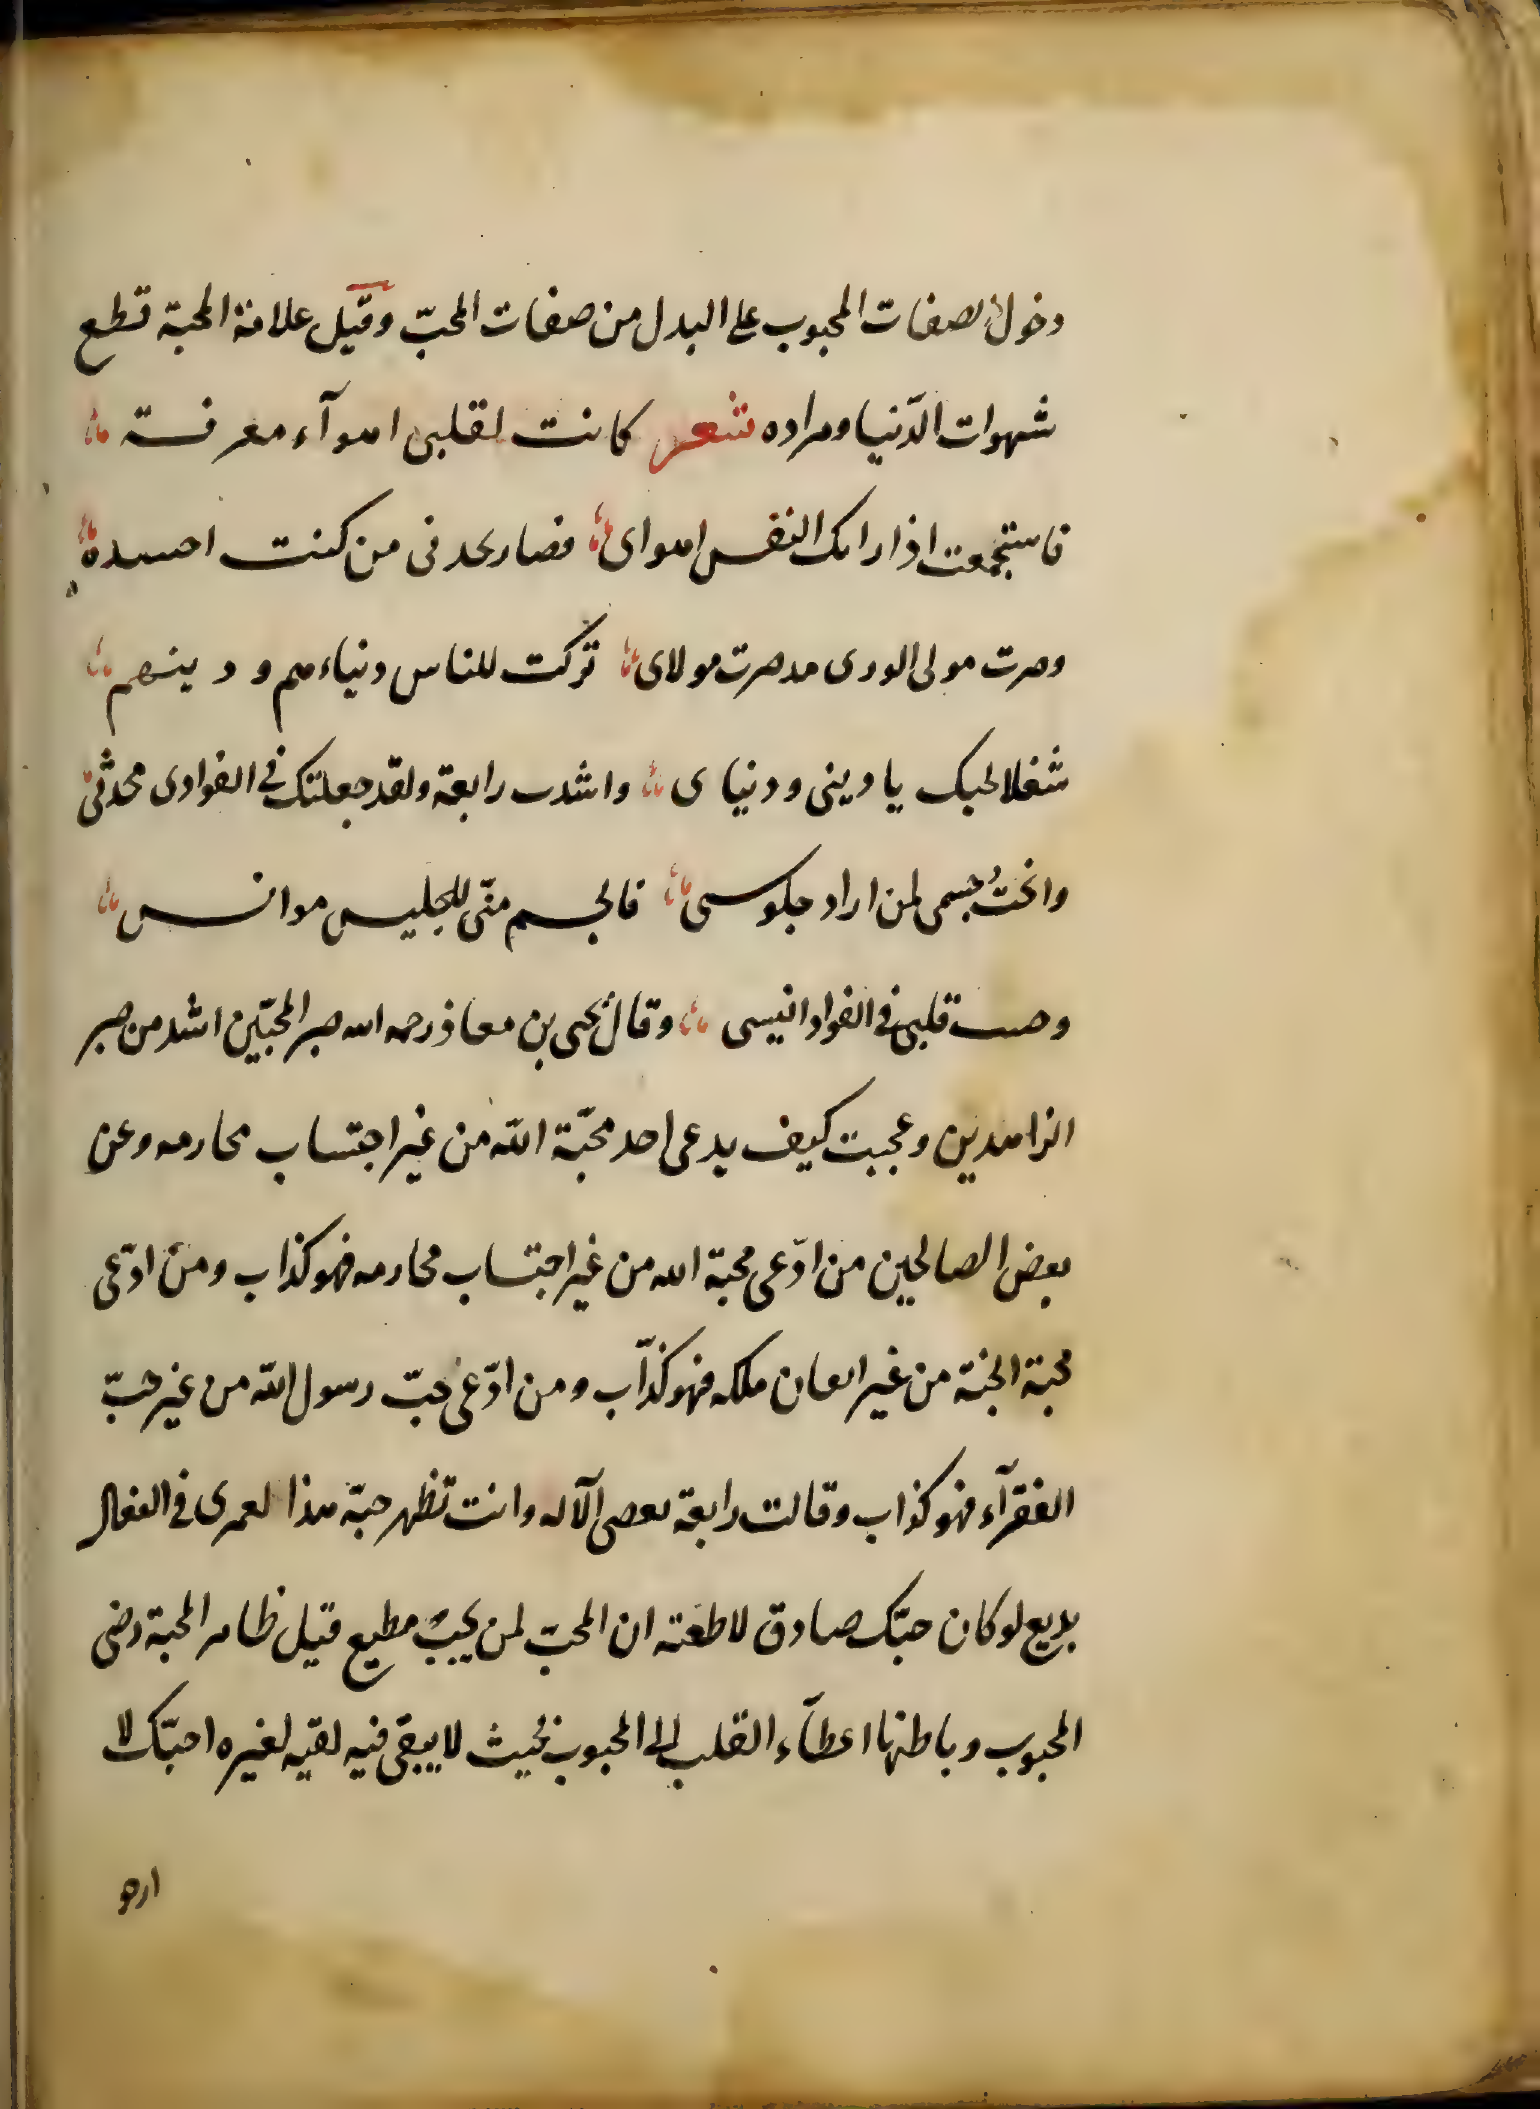 دخول لصفات المحبوب على البدل من صفات المحبّ وقيل علامة المحبة قطع
شهوات الدّنيا ومراده شعر كانت لقلبى اهوآء مفرقسة
فاستجمعت اذا راتك النفس اهواى فصار يحدنى من كنت احسده
وصرت مولى الورى مد صرت مولاى تركت للناس دنياءهم و دينهم
شغلا لحبك يا دينى و دنيا ى وانشدت رابعة ولقد جعلتك فى الفوادى محدثىّ
وانحتُ جسمى لمن اراد جلوسى فالجسم منّى للجليس موانس
وحبيب قلبى فى الفواد انيسى وقال يحيى بن معاذ رحمه الله صبر المحبّين اشد من صبر
الزاهدين وعجبت كيف يدعى احد محبّة الله من غير اجتساب محارمه وعن
بعض الصالحين من ادّعى محبة الله من غير اجتساب محارمه فهو كذاب ومن ادّعى
محبة الجنّة من غير انفاق ملكه فهو كذّاب ومن ادّعى حبّ رسول الله من غير حبّ
الفقرآء فهو كذاب وقالت رابعة تعصى الآله وانت تظهر حبّه هذا لعمرى فى الفعال
بديع لو كان حبّك صادق لاطعته ان المحبّ لمن يحبّ مطيع قيل ظاهر المحبة رضى
المحبوب وباطنها اعطآء القلب الى المحبوب بحيث لا يبقى فيه لقيه لغيره احبّك لا
ارجو